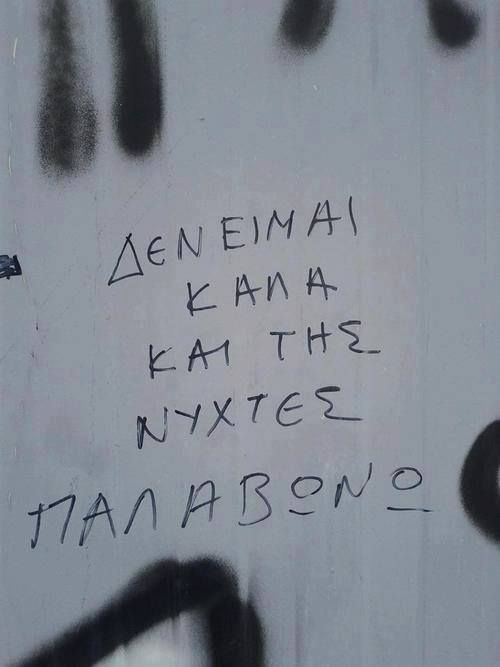 ΔΕΝ ΕΙΜΑΙ
ΚΑΛΑ
ΚΑΙ ΤΗΣ
ΝΥΧΤΕΣ
ΠΑΛΑΒΩΝΩ